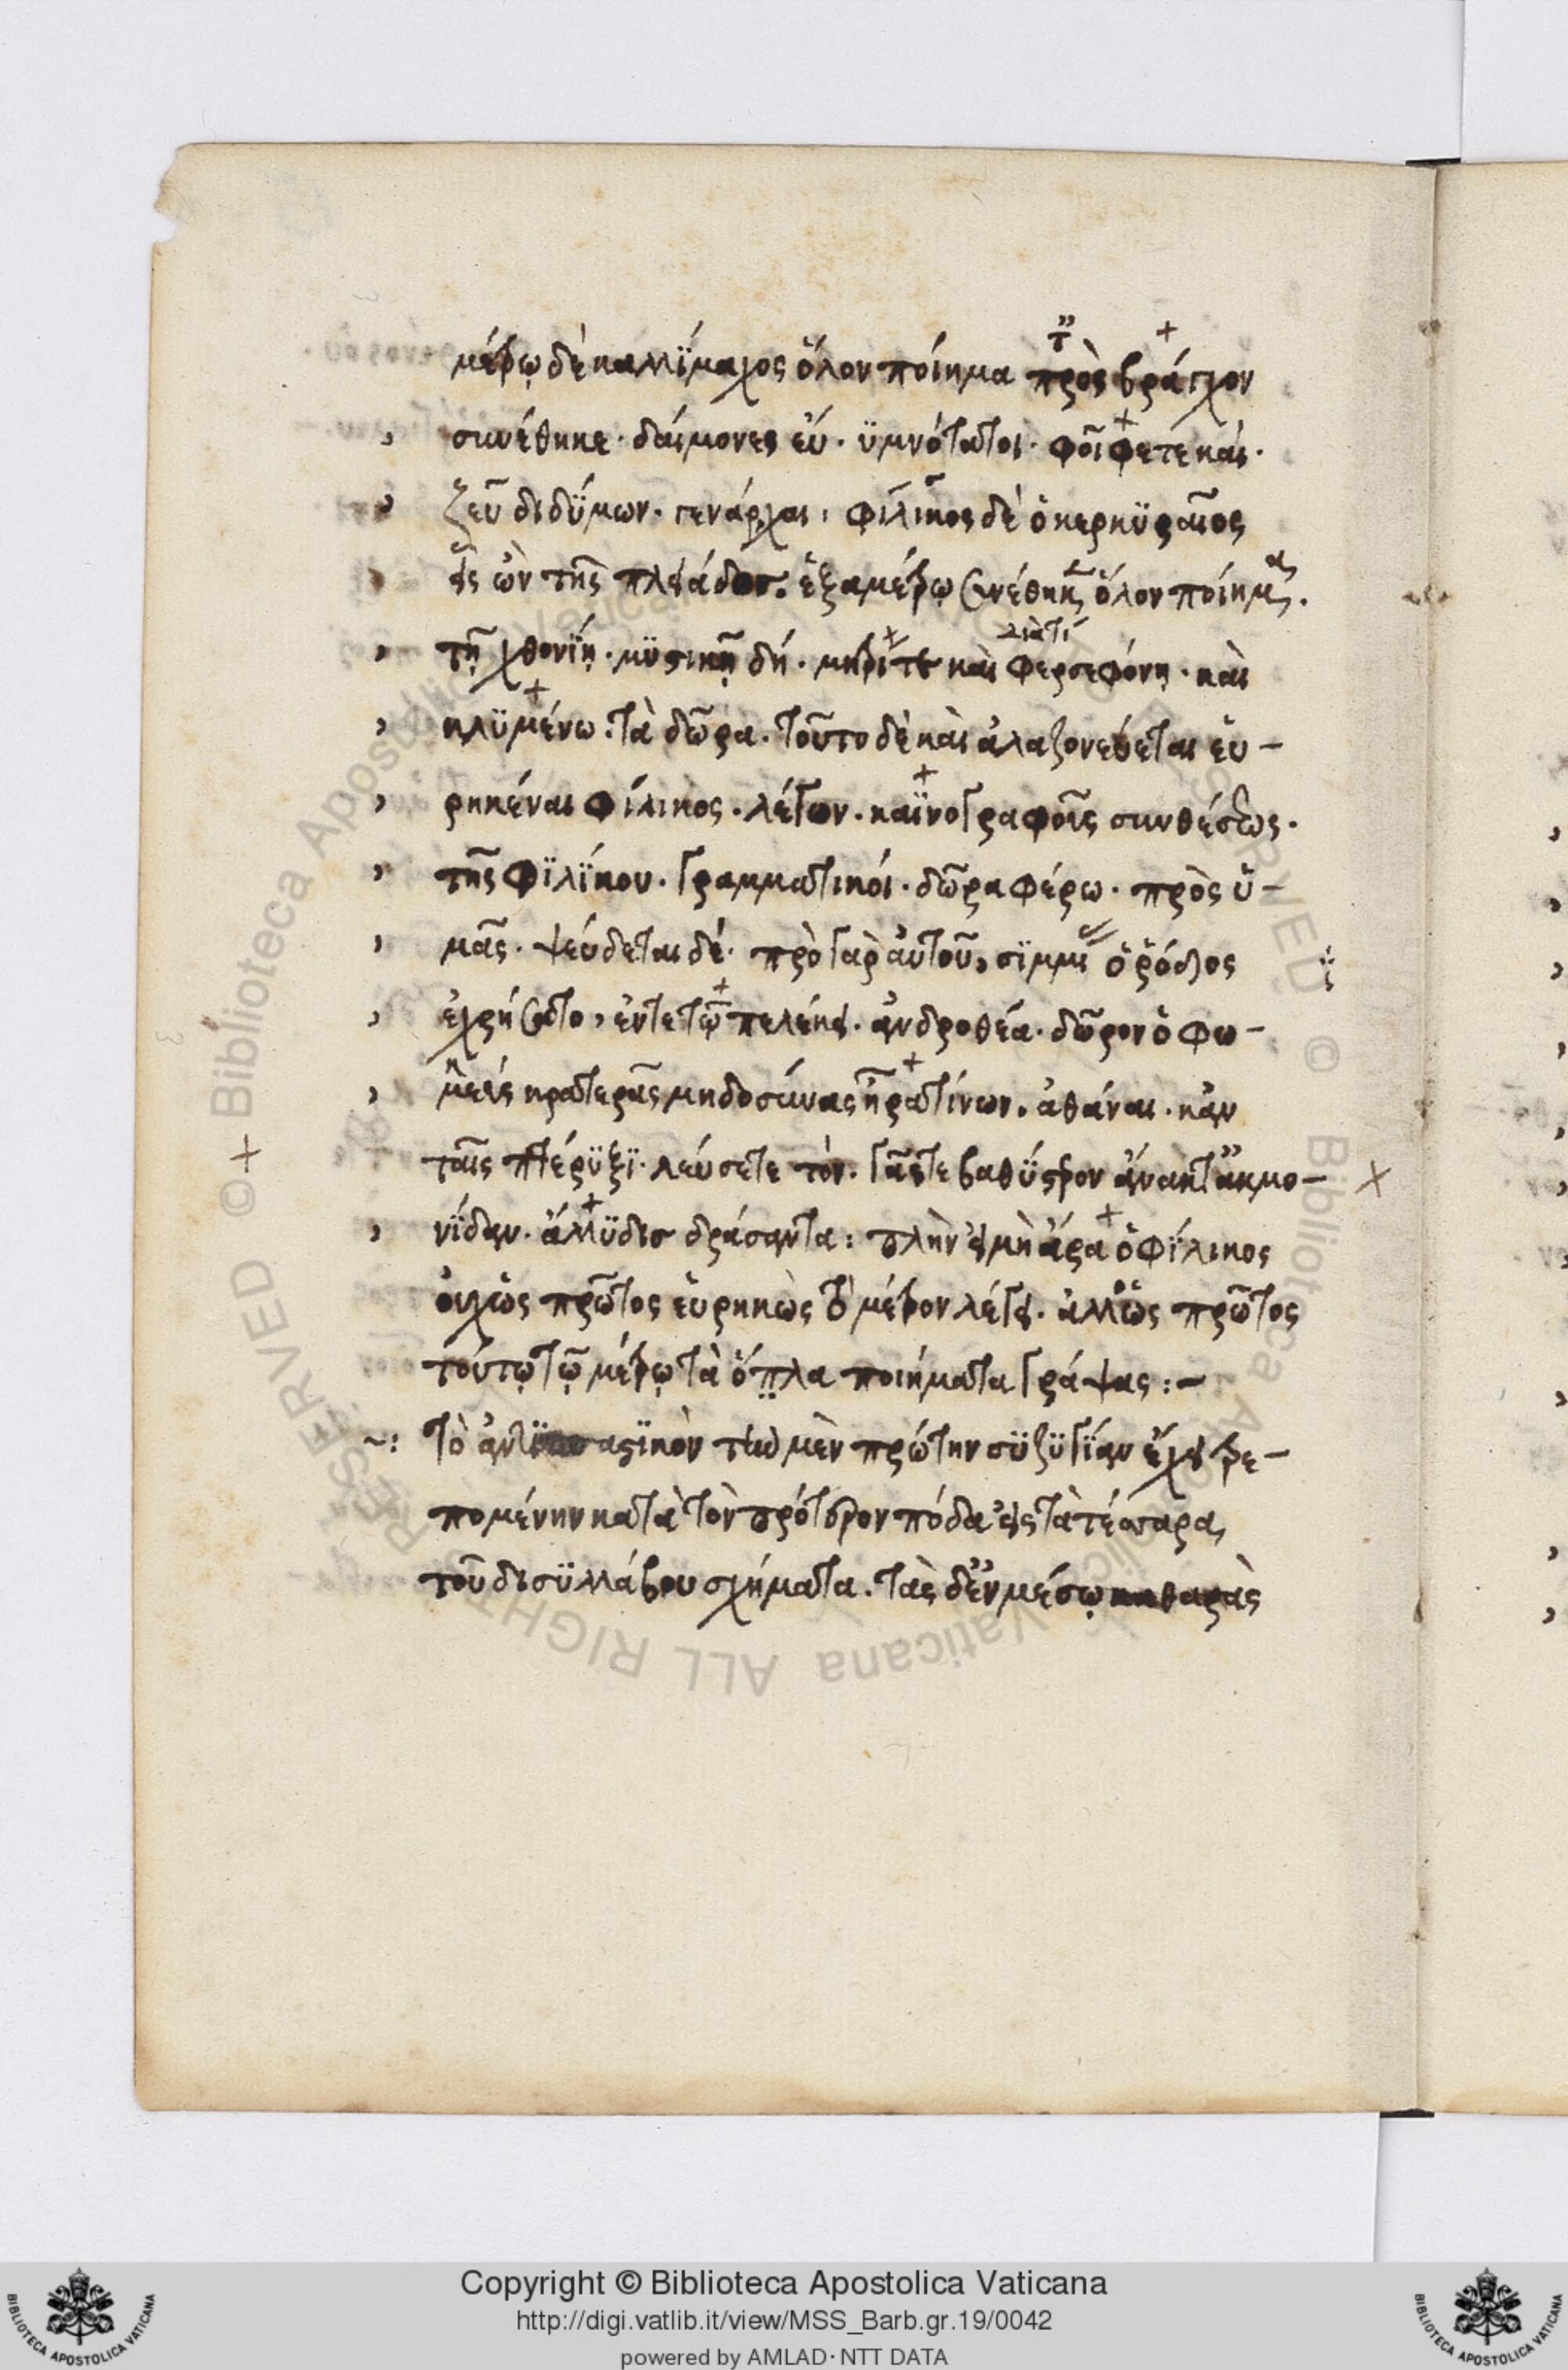 μέτρῳ δὲ καλλίμαχος ὅλον ποίημα πρὸς βράγχον
συνέθηκε· δαίμονες εὐ· ϋμνότατοι· φοῖφετε καὶ·
ζεῦ διδύμων· γενάρχαι· φίλικος δὲ ὁ κερκϋραῖος
εἷς ὢν τῆς πλειάδος· ἑξαμέτρῳ συνέθηκεν ὅλον ποίημα·
τῇ χθονΐῃ· μϋστικῇ δή· μητρί τε καὶ φερσεφόνῃ· καὶ
διατί
κλϋμένω· τὰ δῶρα· τοῦτο δὲ καὶ ἀλαζονεύεται εὑ-
ρηκέναι φίλικος· λέγων· καϊνογραφοῦς συνθέσεως·
τῆς φϊλΐκου· γραμματικοί· δῶρα φέρω· πρὸς ὑ-
μᾶς· ψεύδεται δέ· πρὸ γὰρ αὐτοῦ, σϊμμι ὁ ῥόδιος
ἐχρήσατο, ἔν τε τῶ πελέκει· ἀνδροθέα· δῶρον ὁ φω-
κεὺς κρατερᾶς μηδοσύνας ἦρα τίνων· ἀθάναι· κἀν
ταῖς πτέρϋξϊ· λεύσετε τόν· γᾶς τε βαθύστρον ἄνακτ' ἀκμο-
νΐδαν· ἄλλϋδισ δράσαντα: πλὴν εἰ μὴ ἄρα ὁ φίλικος
οὐχ ὡς πρῶτος εὑρηκὼς τὸ μέτρον λέγει· ἀλλ' ὡς πρῶτος
τούτῳ τῷ μέτρῳ τὰ ὅπλα ποιήματα γράψας:-
~: τὸ ἀντϊσπαστϊκὸν τὴν μὲν πρώτην σϋζϋγΐαν ἔχει τρε-
πομένην κατὰ τὸν πρότερον πόδα εἰς τὰ τέσσαρα
τοῦ δισϋλλάβου σχήματα· τὰς δ' ἐν μέσῳ καθαρὰς
Copyright © Biblioteca Apostolica Vaticana
http://digi.vatlib.it/view/MSS_Barb.gr.19/0042
powered by AMLAD·NTT DATA